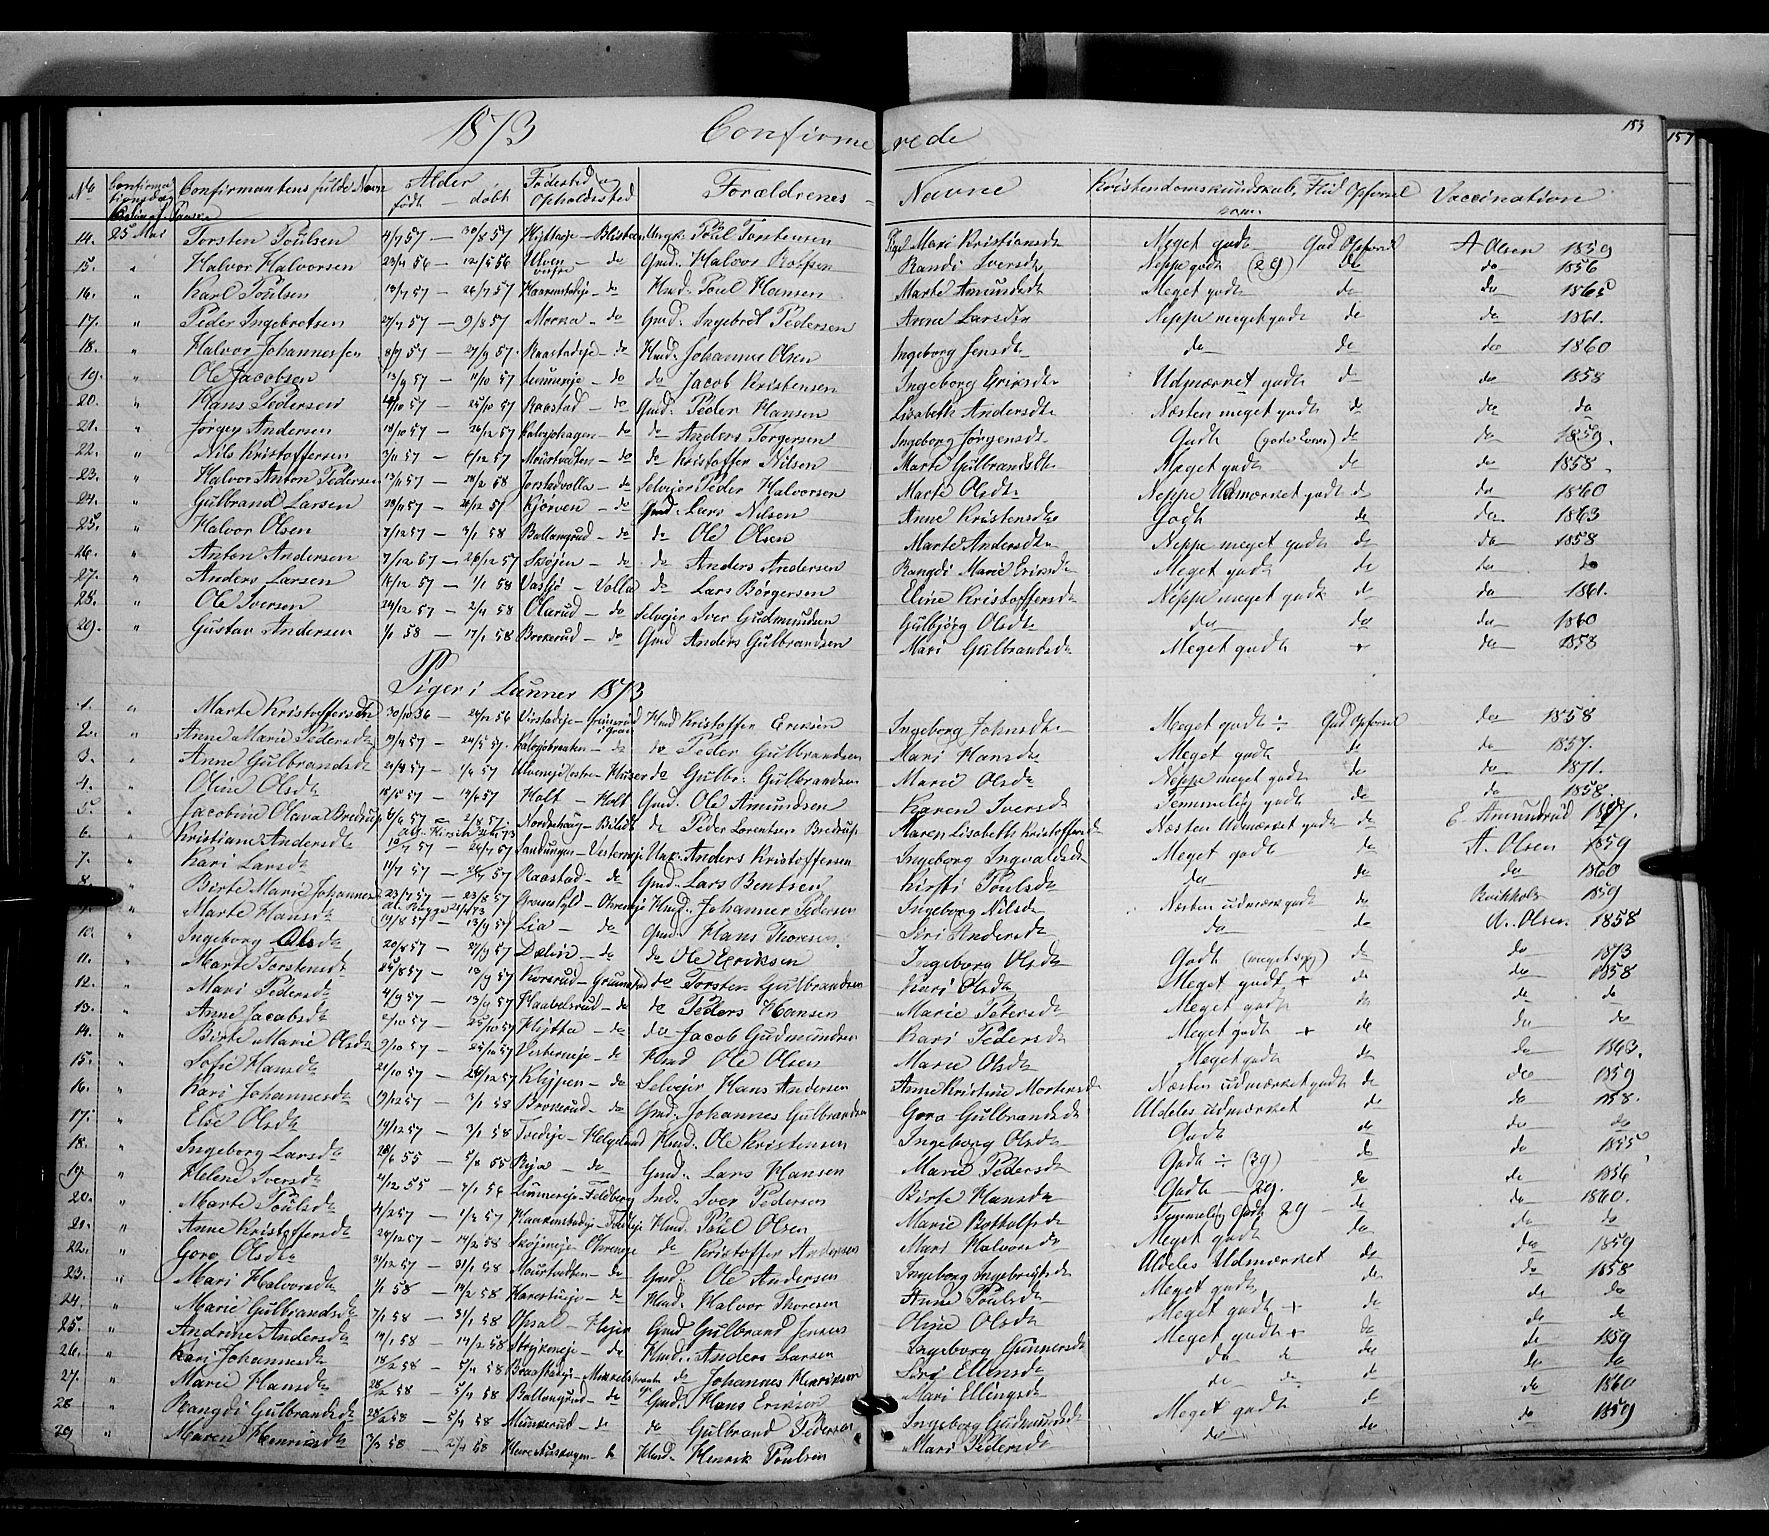 1873 Confirmerede 153
157
No Confirmationsdag Confirmantens fulde Navn Alder født – døbt Fødested og Opholdssted Forældrenes Navne Kristendomskundskab, Flid Opførsel Vaccination
14. 25 Mai Torsten Poulsen 4/7 57 – 30/8 57 Poul Torstensen Mari Kristiansdt Meget godt God Opførsel A Olsen 1859
15. " Halvor Halvorsen 23/4 56 – 12/5 56 Ulven – do Gmd. Halvor Randi Iversdt Neppe godt (29) do do 1856
16. " Karl Poulsen 13/7 57 – 26/7 57 – do Hmd. Poul Hansen Marte Amundsdt Meget godt do do 1865
17. " Peder Ingebretsen 27/7 57 – 9/8 57 Morka – do Gmd. Ingebret Pedersen Anne Larsdt Neppe meget godt do do 1861.
18. " Halvor Johannessen 8/9 57 – 27/9 57. Raastadeje – do Hmd. Johannes Olsen Ingeborg Jensdt do do do 1860
19. " Ole Jacobsen 13/9 57 – 11/10 57 Lunnereje – do do Jacob Kristensen Ingeborg Eriksdt Udmærket godt do do 1858
20. " Hans Pedersen 4/10 57 – 25/10 57 Raastad – do Gmd. Peder Hansen Lisabeth Andersdt Næsten meget godt do do do
21. " Jørgen Andersen 18/10 57 – 26/12 57 Kalvsjøhagen – do do Anders Torgersen Ingeborg Jørgensdt Godt (gode Evner) do do 1859.
22. " Nils Kristoffersen 3/11 57 – 6/12 57 Mourtvedten – do do Kristoffer Nilsen Marte Gulbrandsdt Meget godt do do 1858
23. " Halvor Anton Pedersen 13/11 57 – 28/2 58 Jorstadvolla – do Selvejer Peder Halvorsen Marte Olsdt Neppe Udmærket godt do do 1860
24. " Gulbrand Larsen 28/11 57 – 26/12 57 Kjørven – do Gmd. Lars Nilsen Anne Kristensdt Godt do do 1863
25. " Halvor Olsen 7/12 57 – 3/1 58 Ballangrud – do do Ole Olsen Marte Andersdt Neppe meget godt do do 1858
26. " Anton Andersen 7/12 57 – 26/12 57 Skøjen – do do Anders Andersen Rangdi Marie Eriksdt Meget godt do do do
27. " Anders Larsen 14/12 57 – 1/1 58 Vassjø – Volla do Lars Børgersen Eline Kristoffersdt Neppe meget godt do do 1861.
28. " Ole Iversen 24/12 57 – 2/4 58 Olarud – do Selvejer Iver Gudmundsen Gulbjørg Olsdt do do do 1860
29. " Gustav Andersen 1/1 58 – 17/1 58 Brokerud – do Gmd Anders Gulbrandsen Mari Gulbrandsdt Meget godt + do 1858
Piger i Lunner 1873
1. " Marte Kristoffersdt 30/10 56 – 26/12 56 Hmd Kristoffer Eriksen Ingeborg Johnsdt Meget godt ÷ God Opførsel do 1858
2. " Anne Marie Pedersdt 19/4 57 – 24/5 57 Kalvsjøbraaten – do do Peder Gulbrandsen Mari Hansdt Meget godt do do 1857.
3. " Anne Gulbrandsdt 21/4 57 – 1/6 57 do Gulbr. Gulbrandsen Marie Olsdt Neppe meget godt do do 1871.
4. " Oline Olsdt 18/5 57 – 14/6 57 Holt – Holt Gmd. Ole Amundsen Karen Iversdt Temmelig godt do do 1858.
5. " Jacobine Olava Bredrup 6/6 57 – 2/8 57. Nordrehoug – Bildt do Peder Lorentsen Bredrup Maren Lisabeth Kristoffersdt Næsten Udmærket godt do E. Amundrud
6. " Kristiane Andersdt 10/7 57 – 26/7 57 Sandungen – Vestereneje Anders Kristoffersen Ingeborg Ingvaldsdt Meget godt do A. Olsen 1859
7. " Kari Larsdt 11/7 57 – 26/7 57 Raastad – do Gmd. Lars Bentsen Kirsti Poulsdt do do do 1860
8. " Birte Marie Johannesdt 23/7 57 – 23/8 57 Hmd. Johannes Pedersen Ingeborg Nilsdt Næsten udmærket godt do 1859
9. " Marte Hansdt 19/8 57 – 13/9 57 Lia – do Gmd. Hans Thoresen Siri Andersdt do do A. Olsen 1858
10. " Ingeborg Olsdt 20/8 57 – 27/9 57 – do do Ole Eriksen Ingeborg Olsdt Godt (meget syg) do do 1873
11. " Marte Torstensdt 25/8 57 – 13/9 57 do Torsten Gulbrandsen Kari Olsdt Meget godt + do do 1858
12. " Mari Pedersdt 4/9 57 – 13/9 57 – do do Peders Hansen Marie Petersdt Meget godt do do do
13. " Anne Jacobsdt 2/10 57 – 25/10 57 Klytta – do do Jacob Gudmundsen Kari Pedersdt Meget godt + do do do
14. " Birte Marie Olsdt 9/10 57 – 25/10 57 Vestereneje – do Hmd Ole Olsen Marie Olsdt Meget godt do do 1863.
15. " Sofie Hansdt 21/10 57 – 26/12 57 Klyppen – do Selvejer Hans Andersen Anne Kristine Mortensdt Næsten udmærket godt do do 1859
16. " Kari Johannesdt 19/12 57 – 3/1 58 Brokerud – do Gmd. Johannes Gulbrandsen Goro Gulbrandsdt Aldeles udmærket do do 1858.
17. " Else Olsdt 14/12 57 – 3/1 58 Hmd. Ole Kristensen Ingeborg Olsdt Godt do do do
18. " Ingeborg Larsdt 28/6 55 – 5/8 55 Rya – do Gmd. Lars Hansen Marie Pedersdt Godt ÷ (39) do do 1855
19. " Helene Iversdt 4/12 55 – 7/1 56 Lunnereje – Feldberg Ind. Iver Pedersen Birte Hansdt Godt – 29. do do 1856
20. " Marte Poulsdt 14/2 57 – 1/3 57 Hmd. Poul Olsen Marie Bottolfsdt Temmelig Godt 29 – do do 1860.
21. " Anne Kristoffersdt 24/12 57 – 14/2 58 Skøjeneje – Ohreneje do Kristoffer Andersen Mari Halvorsdt Meget godt do do do
22. " Goro Olsdt 31/12 57 – 31/1 58 Mourtvedten – do Gmd. Ole Andersen Ingeborg Ingebregtsdt Aldeles Udmærket do do 1859
23. " Mari Halvorsdt 1/1 58 – 14/2 58 Harestueje – do Hmd. Halvor Thoresen Anne Poulsdt Meget godt do do 1858
24. " Marie Gulbrandsdt 7/1 58 – 31/1 58 Opsal – Gmd Gulbrand Jensen Oline Olsdt Meget godt + do do do
25. " Andrine Andersdt 14/1 58 – 14/2 58 Strykeneje – do Hmd. Anders Larsen Ingeborg Gunnersdt Meget godt + do do do
26. " Kari Johannesdt 18/2 58 – 5/4 58 do Johannes Henriksen Siri Ellensdt do do do do 1859
27. " Marie Hansdt 28/2 58 – 5/4 58 Ballangrud – do Gmd. Hans Eriksen Mari Ellingsdt do do do do do
28 " Rangdi Gulbrandsdt 28/2 58 – 5/4 58 Munkerud – do do Gulbrand Pedersen Ingeborg Gudmundsdt Meget godt do do 1860
29 " Maren Henriksdt 3/3 58 – 2/4 58 – do Hmd. Henrik Poulsen Mari Pedersdt do do do 1859